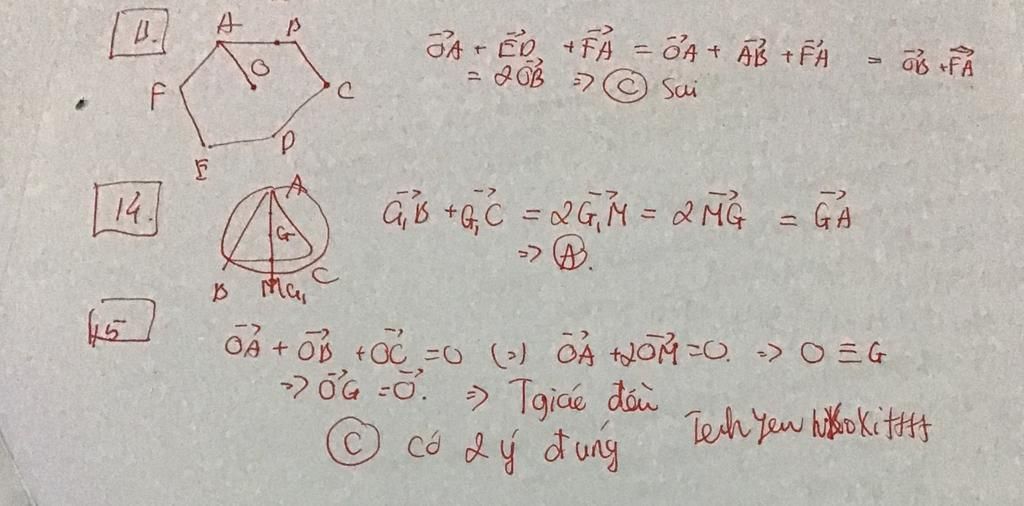 11.
A B
O
F C
D
E
OA→ + ED→ + FA→ = OA→ + AB→ + FA→ = OB→ + FA→
= 2OB→ => Ⓒ Sai
14.
A
G
B M G₁ C
G₁B→ + G₁C→ = 2G₁M→ = 2MG→ = GA→
=> Ⓐ.
15
OA→ + OB→ + OC→ = 0 (=) OA→ + 2OM→ = 0. => O ≡ G
=> OG→ = O→. => Tgiác đều
Ⓒ có 2 ý đúng